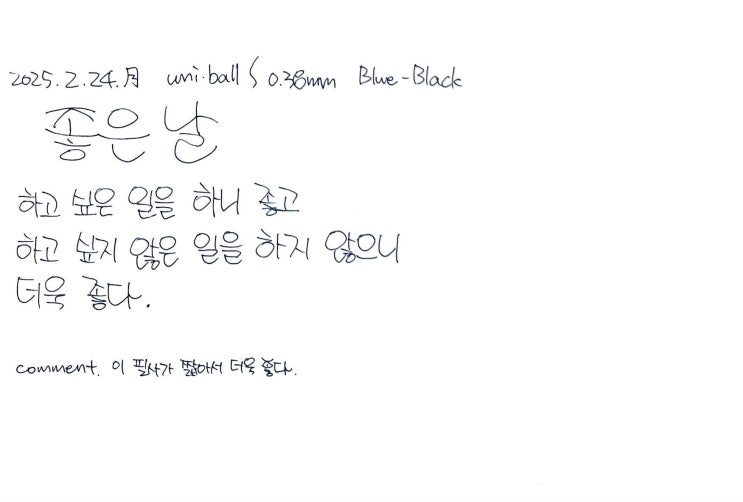 2025. 2. 24. 月 uni·ball S 0.38mm Blue-Black
좋은 날
하고 싶은 일을 하니 좋고
하고 싶지 않은 일을 하지 않으니
더욱 좋다.
comment. 이 필사가 짧아서 더욱 좋다.